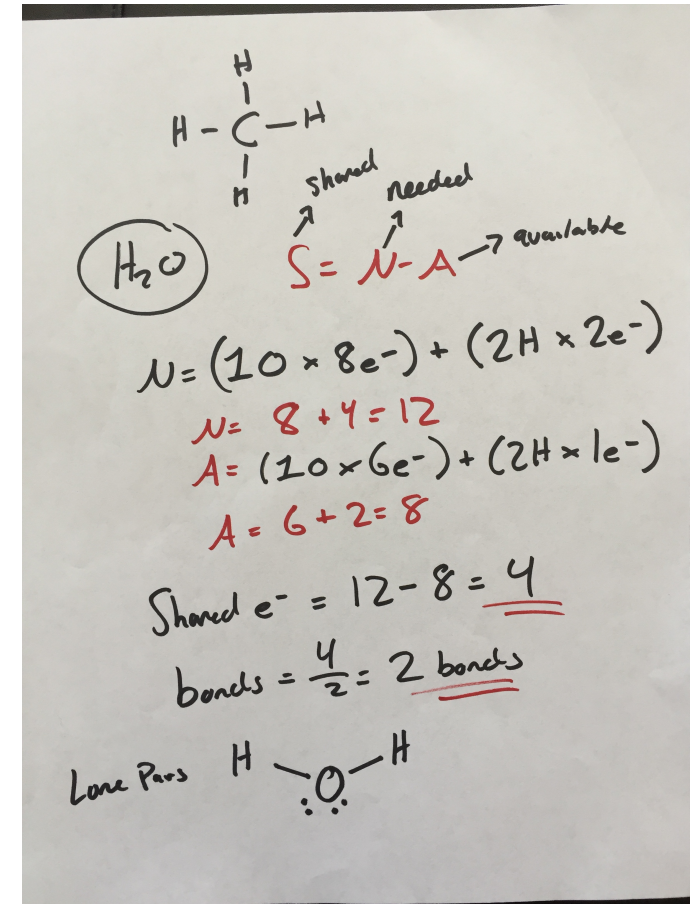 H
H - C - H
H
shared
needed
available
H₂O
S = N - A
N = (1O × 8e⁻) + (2H × 2e⁻)
N = 8 + 4 = 12
A = (1O × 6e⁻) + (2H × 1e⁻)
A = 6 + 2 = 8
Shared e⁻ = 12 - 8 = 4
bonds = 4/2 = 2 bonds
Lone Pars H O H